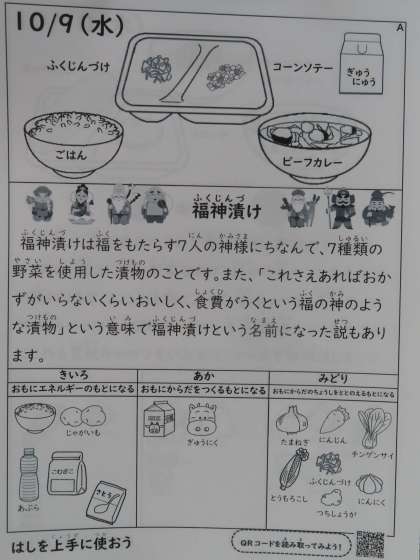 10/9(水)
A
ふくじんづけ
コーンソテー
ぎゅう
にゅう
ごはん
ビーフカレー
ふくじんづ
福神漬け
ふくじんづ ふく にん かみさま しゅるい
福神漬けは福をもたらす7人の神様にちなんで、7種類の
やさい しよう つけもの
野菜を使用した漬物のことです。また、「これさえあればおか
しょくひ ふく かみ
ずがいらないくらいおいしく、食費がうくという福の神のよう
つけもの いみ ふくじんづ なまえ せつ
な漬物」という意味で福神漬けという名前になった説もあり
ます。
きいろ あか みどり
おもにエネルギーのもとになる おもにからだをつくるもとになる おもにからだのちょうしをととのえるもとになる
じゃがいも
ぎゅうにく
たまねぎ にんじん チンゲンサイ
こむぎこ
さとう
あぶら
ふくじんづけ
とうもろこし
にんにく
つちしょうが
はしを上手に使おう
QRコードを読み取ってみよう!